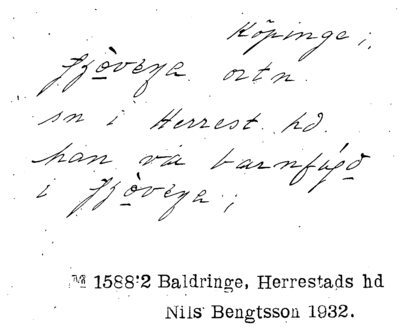 Köpinge;
ortn.
sn i Herrest. hd.
han va barnfọ́gð
i
M 1588:2 Baldringe, Herrestads hd
Nils Bengtsson 1932.